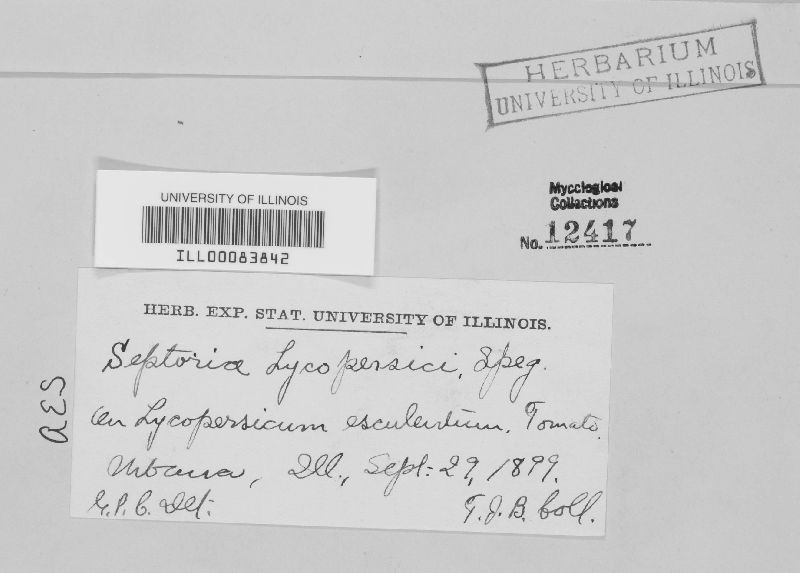 HERBARIUM
UNIVERSITY OF ILLINOIS
UNIVERSITY OF ILLINOIS
ILL00083842
Mycological
Collections
No. 12417
HERB. EXP. STAT. UNIVERSITY OF ILLINOIS.
Septoria Lycopersici, Speg.
on Lycopersicum esculentum. Tomato.
Urbana, Ill., Sept. 29, 1899.
G.P.C. Det. T.J.B. Coll.
RES